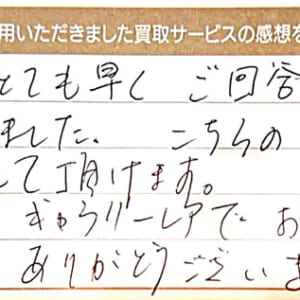 用いただきました買取サービスの感想を
とても早く ご回答
ました。 こちらの
して頂けます。
ギャラリーレアで お
ありがとうござい